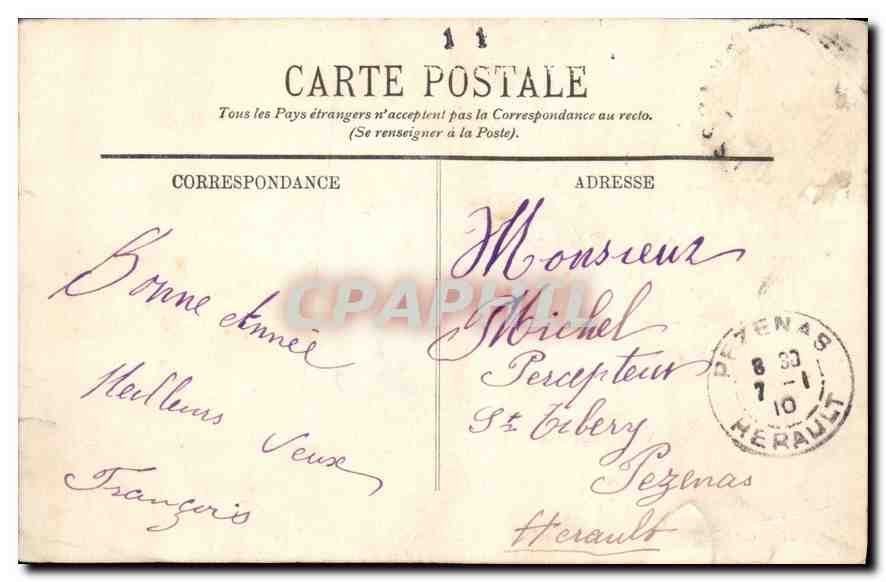 1 1
CARTE POSTALE
Tous les Pays étrangers n'acceptent pas la Correspondance au recto.
(Se renseigner à la Poste).
CORRESPONDANCE
Bonne Année
Meilleurs
Veux
François
ADRESSE
Monsieur
Michel
Percepteur
St Tibery
Pezenas
Herault
PEZENAS
8 30
7 - 1
10
HERAULT
CPAPHIL